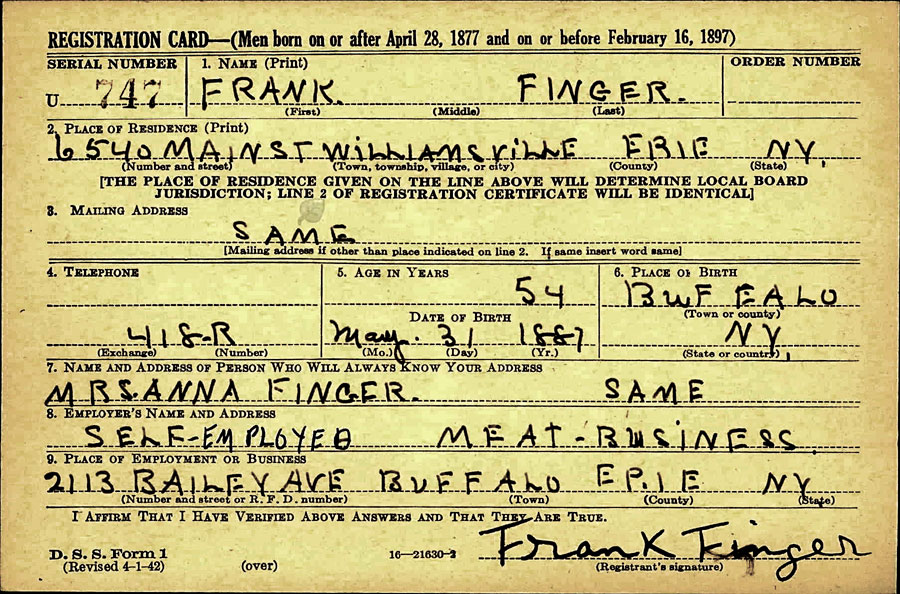 REGISTRATION CARD—(Men born on or after April 28, 1877 and on or before February 16, 1897)
SERIAL NUMBER 1. NAME (Print) ORDER NUMBER
U 747 FRANK. FINGER.
(First) (Middle) (Last)
2. PLACE OF RESIDENCE (Print)
6540 MAIN ST WILLIAMSVILLE ERIE NY.
(Number and street) (Town, township, village, or city) (County) (State)
[THE PLACE OF RESIDENCE GIVEN ON THE LINE ABOVE WILL DETERMINE LOCAL BOARD
JURISDICTION; LINE 2 OF REGISTRATION CERTIFICATE WILL BE IDENTICAL]
3. MAILING ADDRESS
SAME
[Mailing address if other than place indicated on line 2. If same insert word same]
4. TELEPHONE 5. AGE IN YEARS 6. PLACE OF BIRTH
54 BUFFALO
DATE OF BIRTH (Town or county)
418-R May. 31 1887 NY.
(Exchange) (Number) (Mo.) (Day) (Yr.) (State or country)
7. NAME AND ADDRESS OF PERSON WHO WILL ALWAYS KNOW YOUR ADDRESS
MRS. ANNA FINGER. SAME
8. EMPLOYER'S NAME AND ADDRESS
SELF-EMPLOYED MEAT-BUSINESS
9. PLACE OF EMPLOYMENT OR BUSINESS
2113 BAILEY AVE BUFFALO ERIE NY
(Number and street or R. F. D. number) (Town) (County) (State)
I AFFIRM THAT I HAVE VERIFIED ABOVE ANSWERS AND THAT THEY ARE TRUE.
Frank Finger
D. S. S. Form 1 16—21630-2
(Revised 4-1-42) (over) (Registrant's signature)